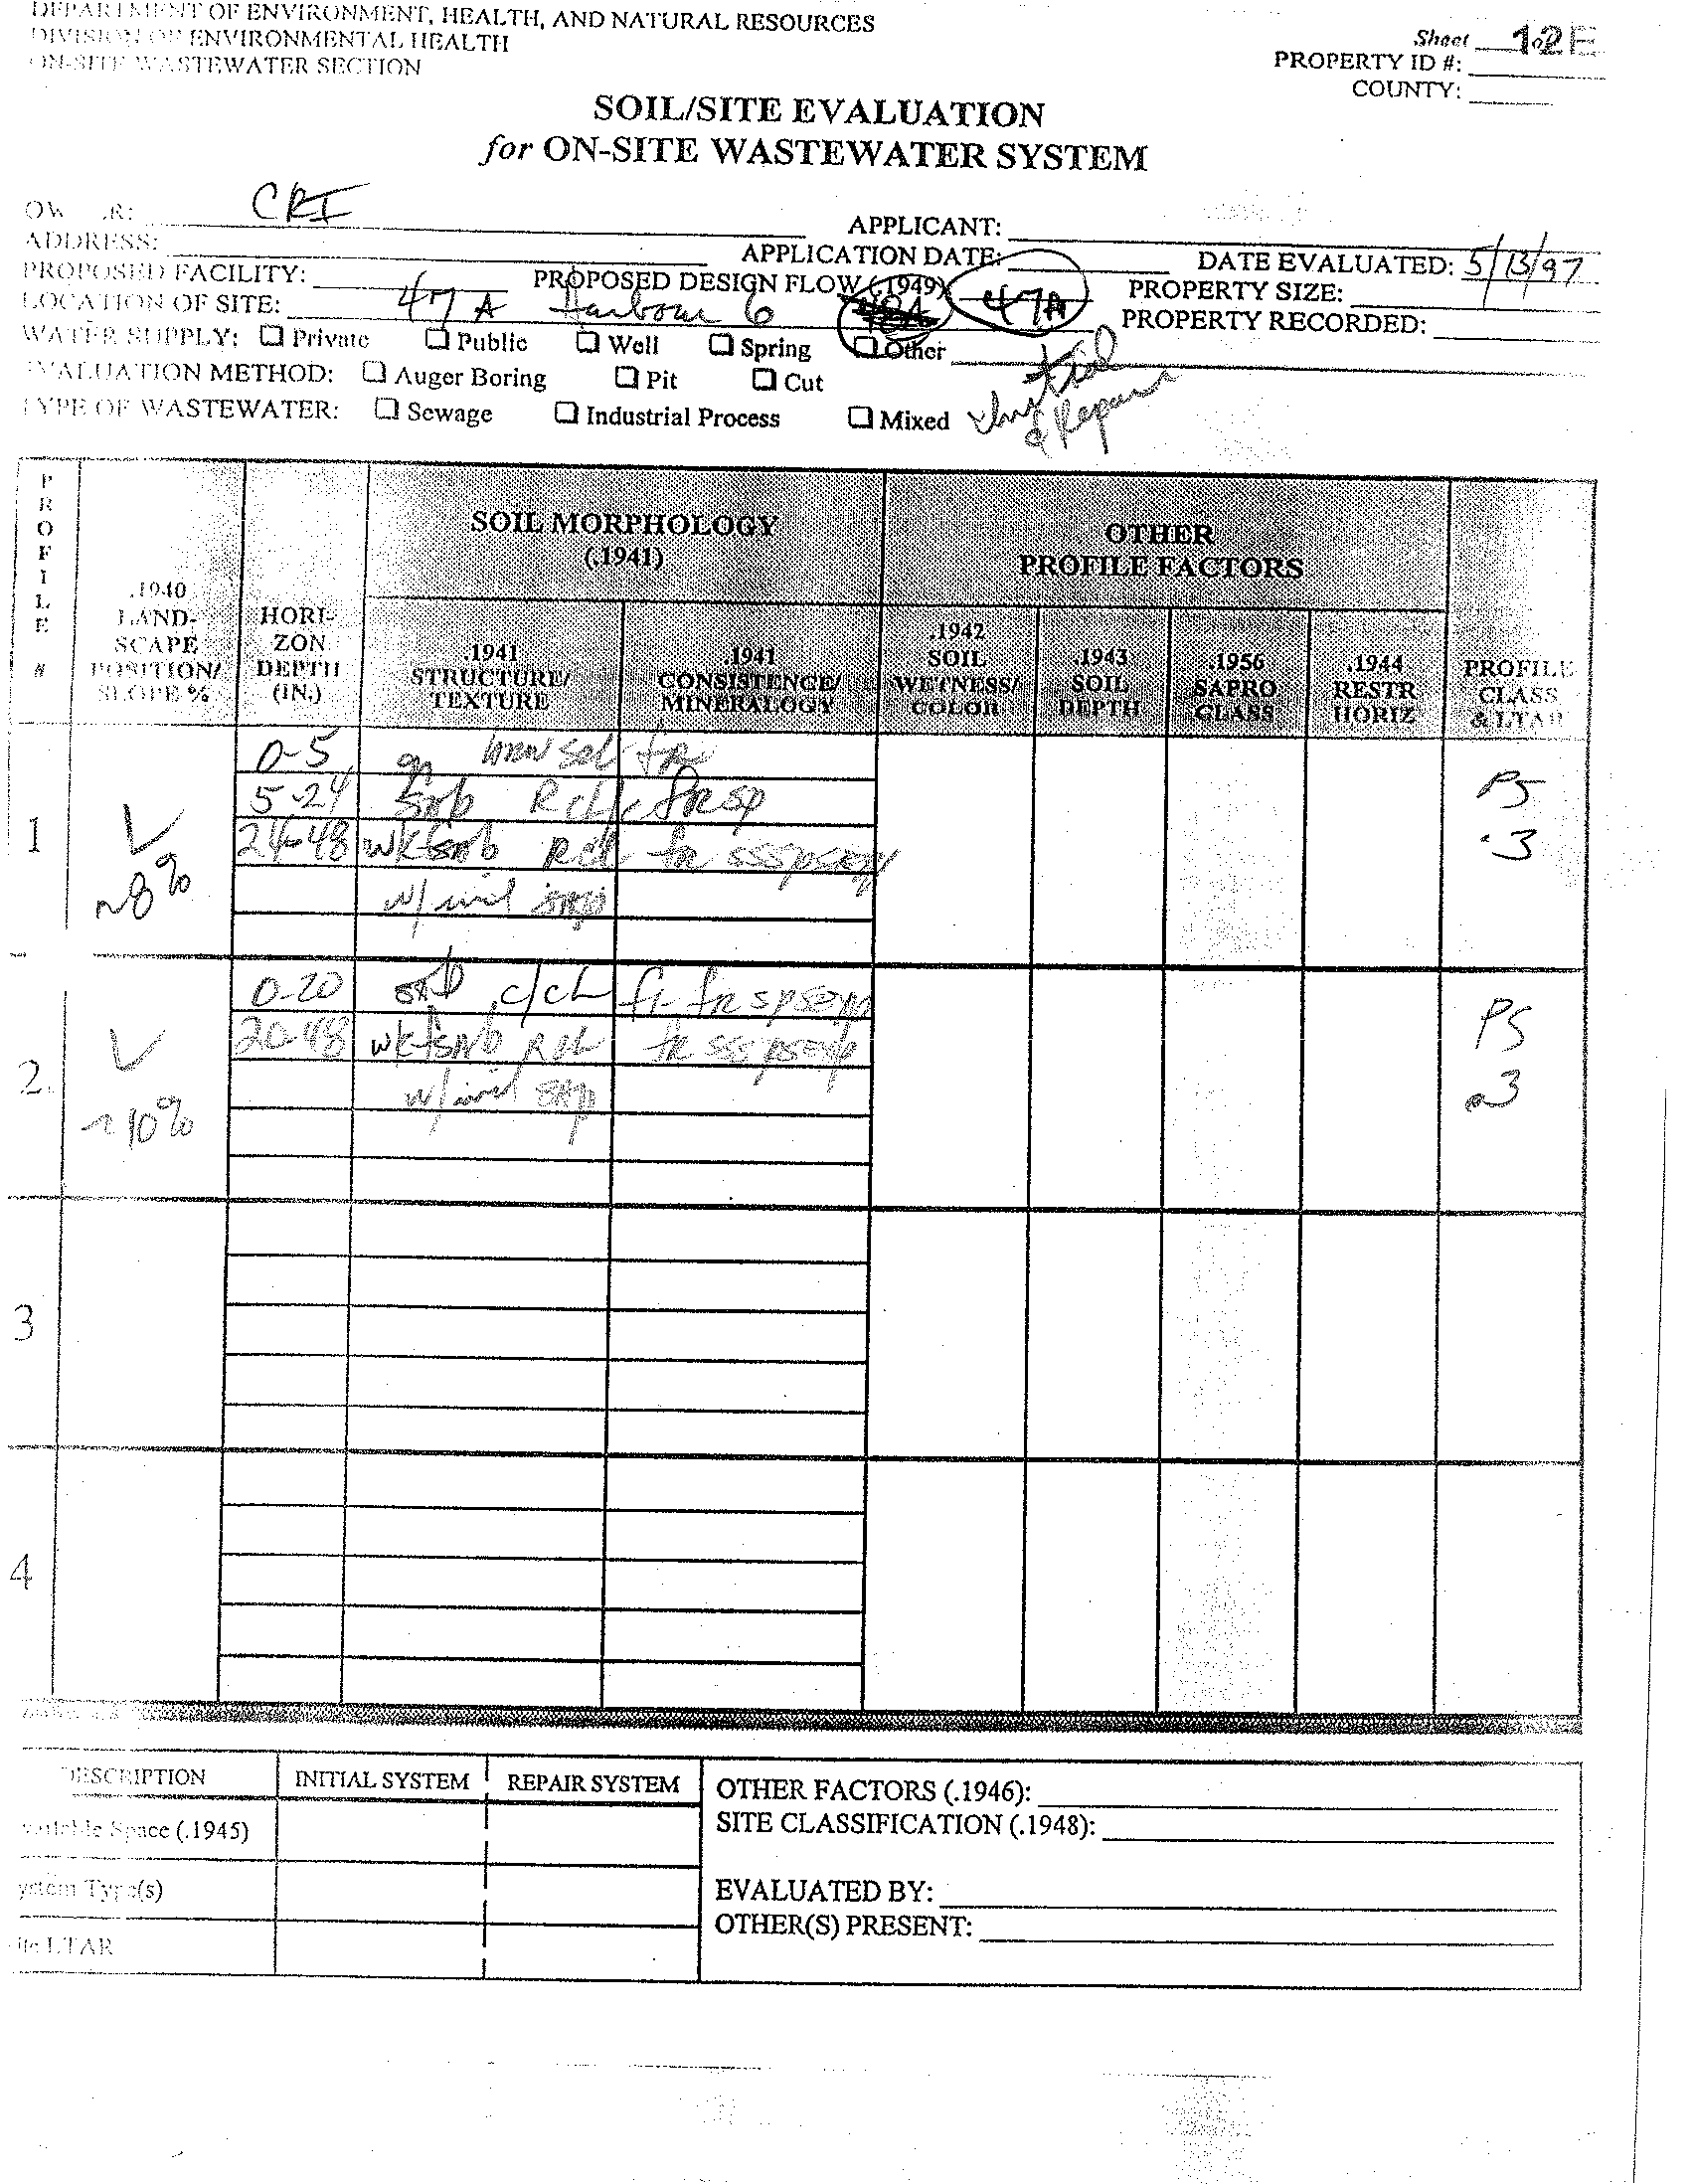 DEPARTMENT OF ENVIRONMENT, HEALTH, AND NATURAL RESOURCES
DIVISION OF ENVIRONMENTAL HEALTH
ON-SITE WASTEWATER SECTION
Sheet 12E
PROPERTY ID #:
COUNTY:
SOIL/SITE EVALUATION
for ON-SITE WASTEWATER SYSTEM
OW R: CRI
APPLICANT:
ADDRESS:
APPLICATION DATE:
DATE EVALUATED: 5/13/97
PROPOSED FACILITY:
PROPOSED DESIGN FLOW (.1949)
PROPERTY SIZE:
LOCATION OF SITE: 47A Harbour 6 47A
PROPERTY RECORDED:
WATER SUPPLY: Private Public Well Spring Other
EVALUATION METHOD: Auger Boring Pit Cut
TYPE OF WASTEWATER: Sewage Industrial Process Mixed
Initial
& Repair
PROFILE #
.1940 LAND-SCAPE POSITION/ SLOPE %
HORI-ZON DEPTH (IN.)
SOIL MORPHOLOGY (.1941)
.1941 STRUCTURE/ TEXTURE
.1941 CONSISTENCE/ MINERALOGY
OTHER PROFILE FACTORS
.1942 SOIL WETNESS/ COLOR
.1943 SOIL DEPTH
.1956 SAPRO CLASS
.1944 RESTR HORIZ
PROFILE CLASS & LTAR
1
~8%
0-5 gr
5-24 fr sp
24-48 wk
w/
PS
.3
2
~10%
0-20 c/cl
20-48 wk
w/
PS
.3
3
4
DESCRIPTION INITIAL SYSTEM REPAIR SYSTEM
Space (.1945)
ystem Type(s)
ite LTAR
OTHER FACTORS (.1946):
SITE CLASSIFICATION (.1948):
EVALUATED BY:
OTHER(S) PRESENT: